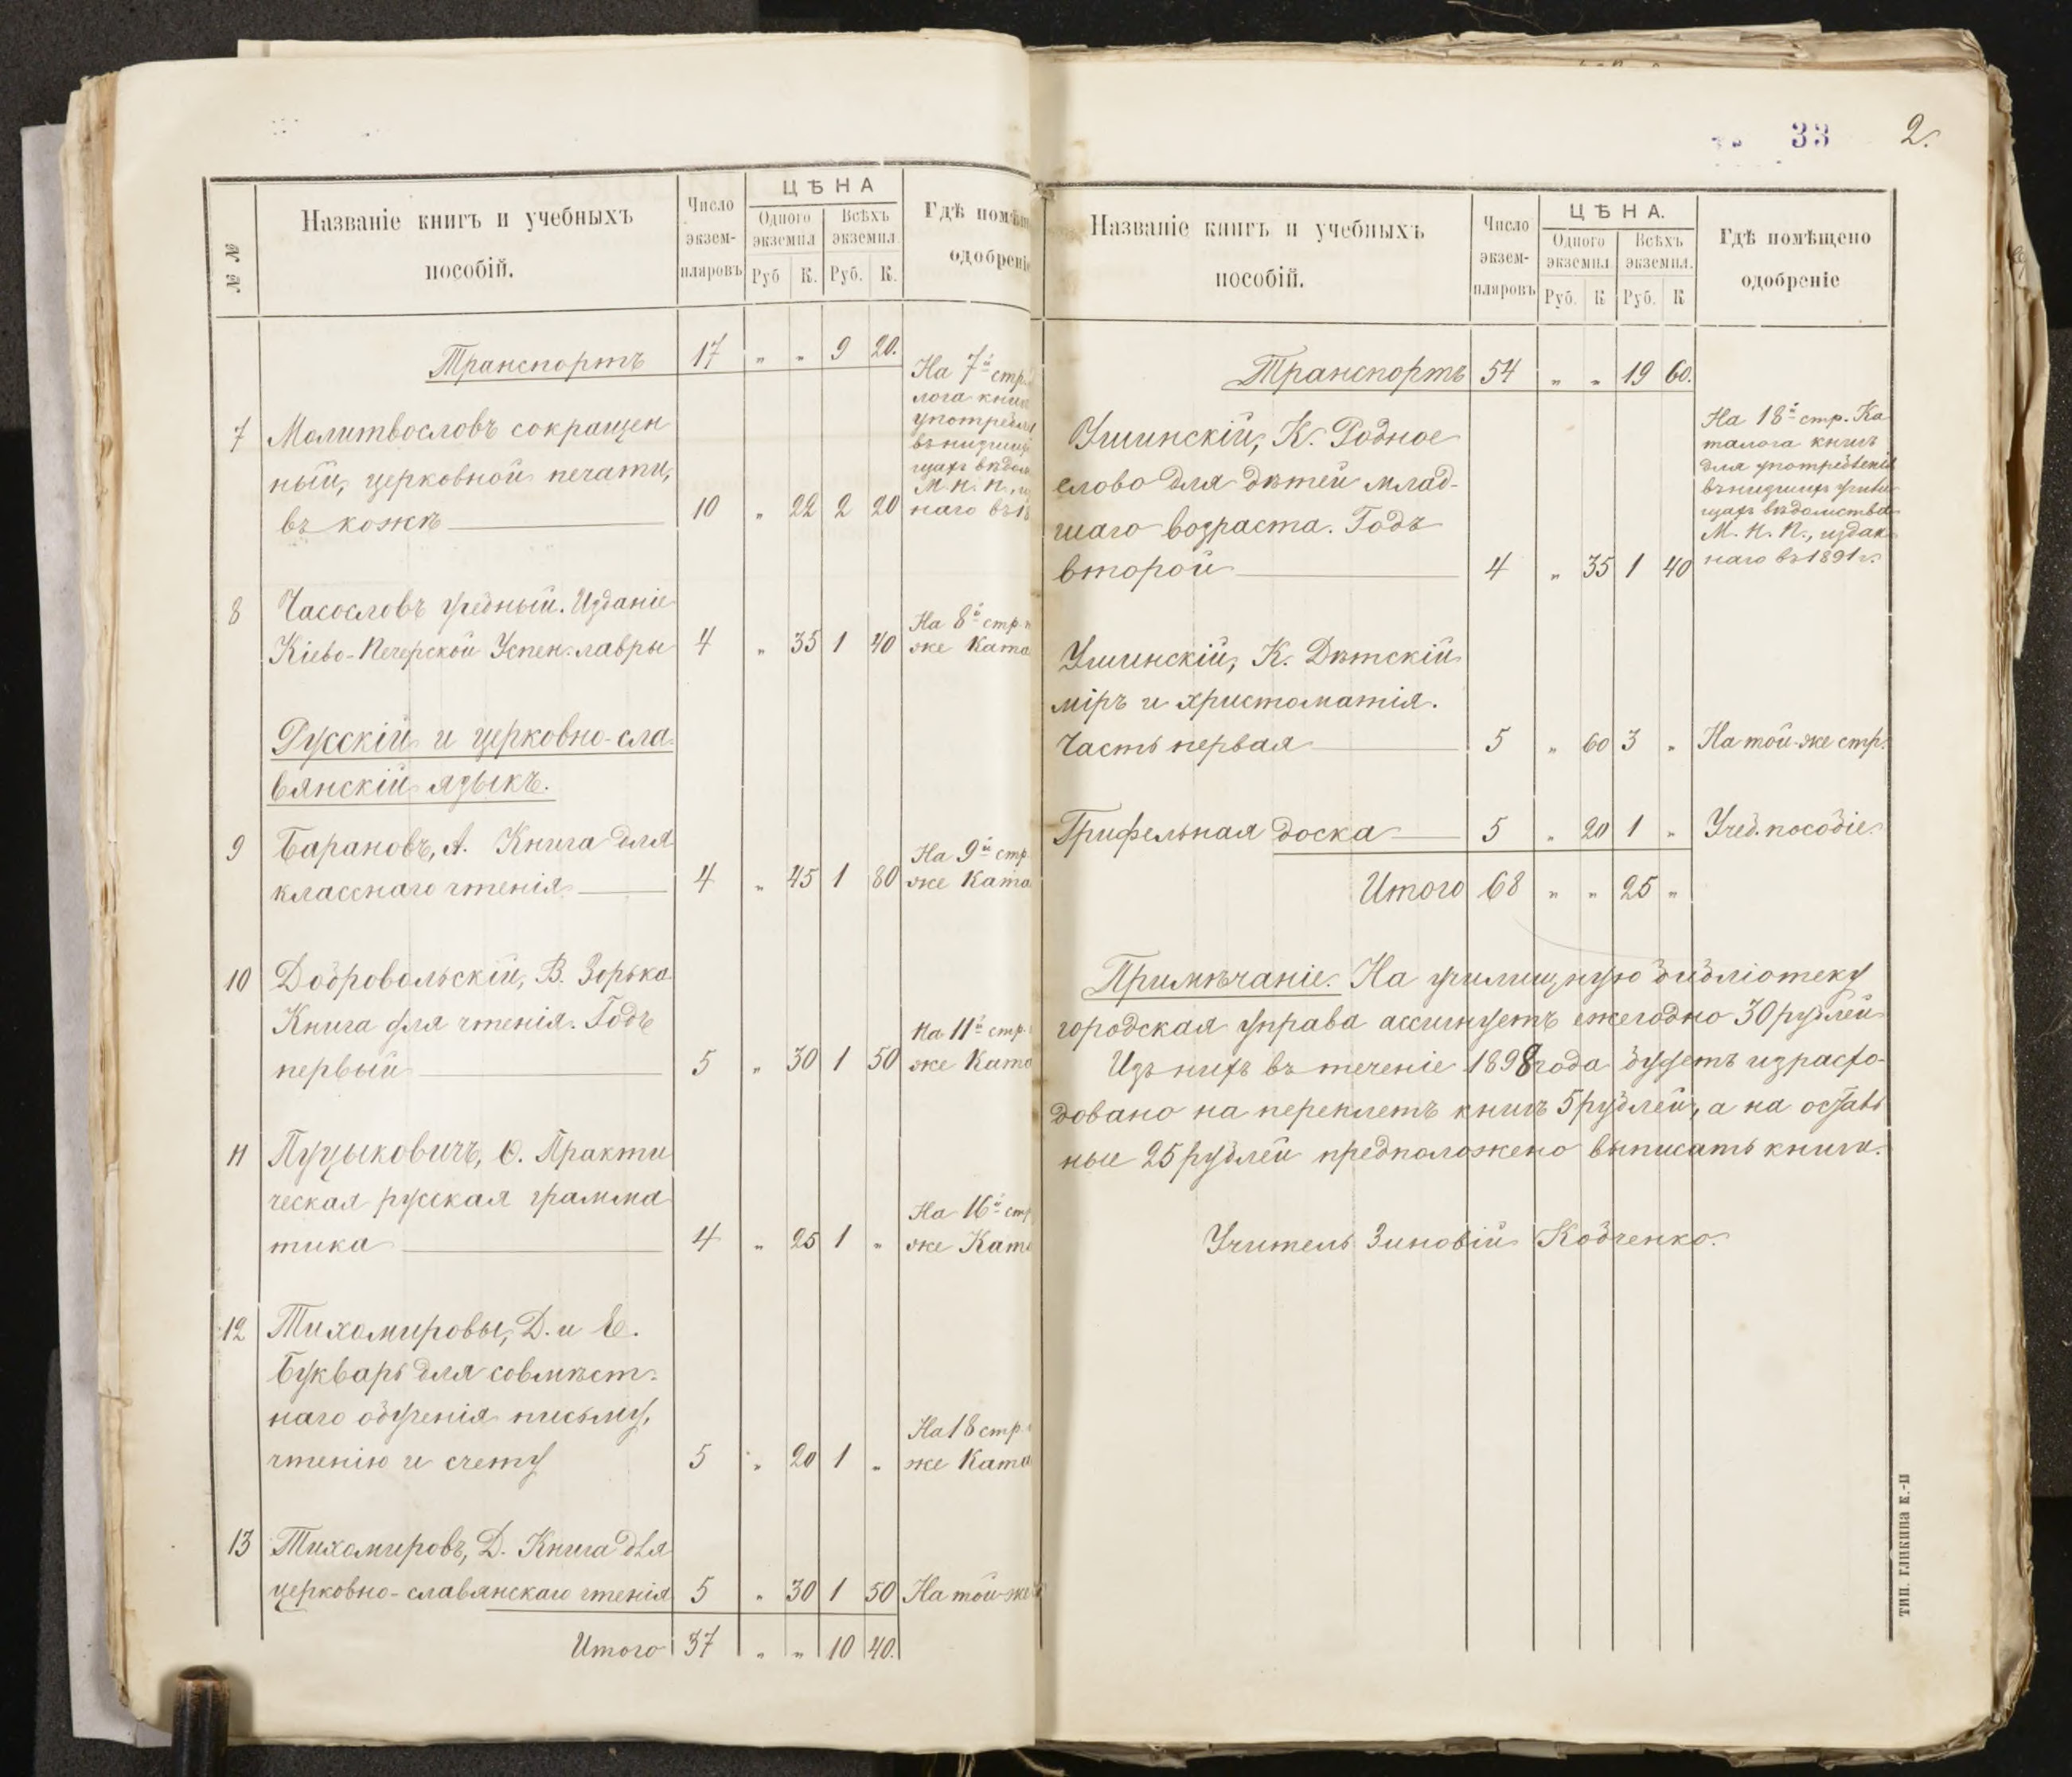 № №
Названіе книгъ и учебныхъ
пособій.
Число
экзем-
пляровъ
ЦѢНА
Одного
экземпл
Всѣхъ
экземпл.
Руб К. Руб. К.
Гдѣ
одобрені
Транспортъ 17 „ „ 9 20.
7 Молитвословъ сокращен
ный, церковной печати,
въ кожѣ 10 „ 22 2 20
На 7й стр.
лога кни
употребл
въ низши
щахъ вѣдом
М. Н. П.,
наго въ 18
8 Часословъ учебный. Изданіе
Кіево-Печерской Успен. лавры 4 „ 35 1 40
На 8й стр.
же Ката
Русскій и церковно-сла
вянскій языкъ.
9 Барановъ, А. Книга для
класснаго чтенія 4 „ 45 1 80
На 9й стр.
же Ката
10 Добровольскій, В. Зорька
Книга для чтенія. Годъ
первый 5 „ 30 1 50
На 11й стр.
же Ката
11 Пуцыковичъ, Ѳ. Практи
ческая русская грамма
тика 4 „ 25 1 „
На 16й стр
же Ката
12 Тихомировы, Д. и Е.
Букварь для совмѣст-
наго обученія письму,
чтенію и счету 5 „ 20 1 „
На 18 стр.
же Ката
13 Тихомировъ, Д. Книга для
церковно-славянскаго чтенія 5 „ 30 1 50 На той-же
Итого 37 „ „ 10 40.
33 2.
Названіе книгъ и учебныхъ
пособій.
Число
экзем-
пляровъ
ЦѢНА.
Одного
экземпл
Всѣхъ
экземпл.
Руб. К Руб. К
Гдѣ помѣщено
одобреніе
Транспортъ 54 „ „ 19 60.
Ушинскій, К. Родное
слово для дѣтей млад-
шаго возраста. Годъ
второй 4 „ 35 1 40
На 18й стр. Ка
талога книгъ
для употребленія
въ низшихъ учили
щахъ вѣдомства
М. Н. П., издан
наго въ 1891 г.
Ушинскій, К. Дѣтскій
міръ и христоматія.
Часть первая 5 „ 60 3 „ На той-же стр.
Грифельная доска 5 „ 20 1 „ Учеб. пособіе.
Итого 68 „ „ 25 „
Примѣчаніе. На училищную библіотеку
городская управа ассигнуетъ ежегодно 30 рублей
Изъ нихъ въ теченіе 1898 года будетъ израсхо-
довано на переплетъ книгъ 5 рублей, а на осталь
ные 25 рублей предположено выписать книги.
Учитель Зиновій Кобченко.
ТИП. ГЛИКИНА К.-П